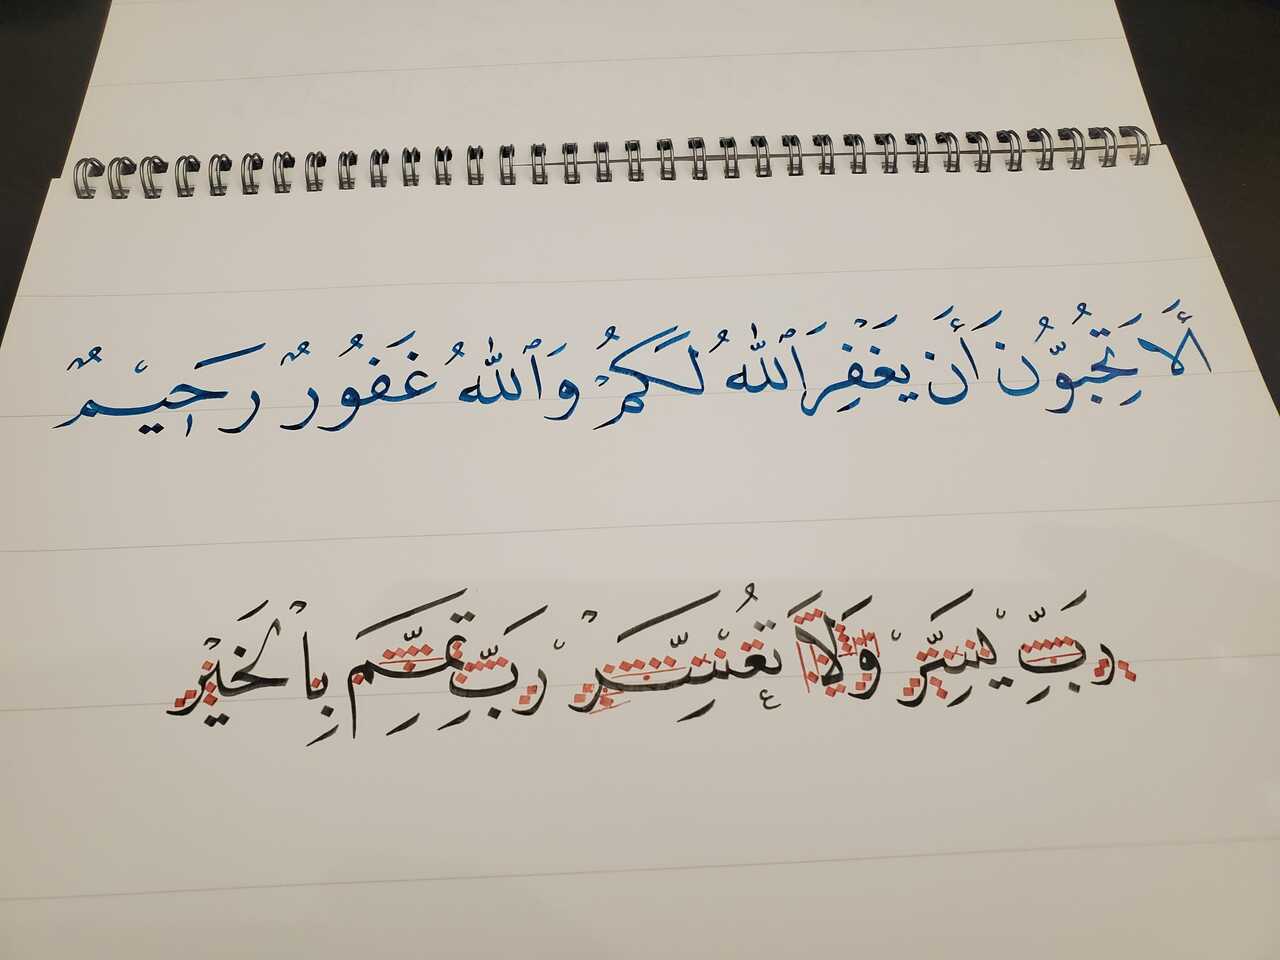 أَلَا تُحِبُّونَ أَنْ يَغْفِرَ ٱللَّهُ لَكُمْ وَٱللَّهُ غَفُورٌ رَحِيمٌ
رَبِّ يَسِّرْ وَلَا تُعَسِّرْ رَبِّ تَمِّمْ بِالْخَيْرِ